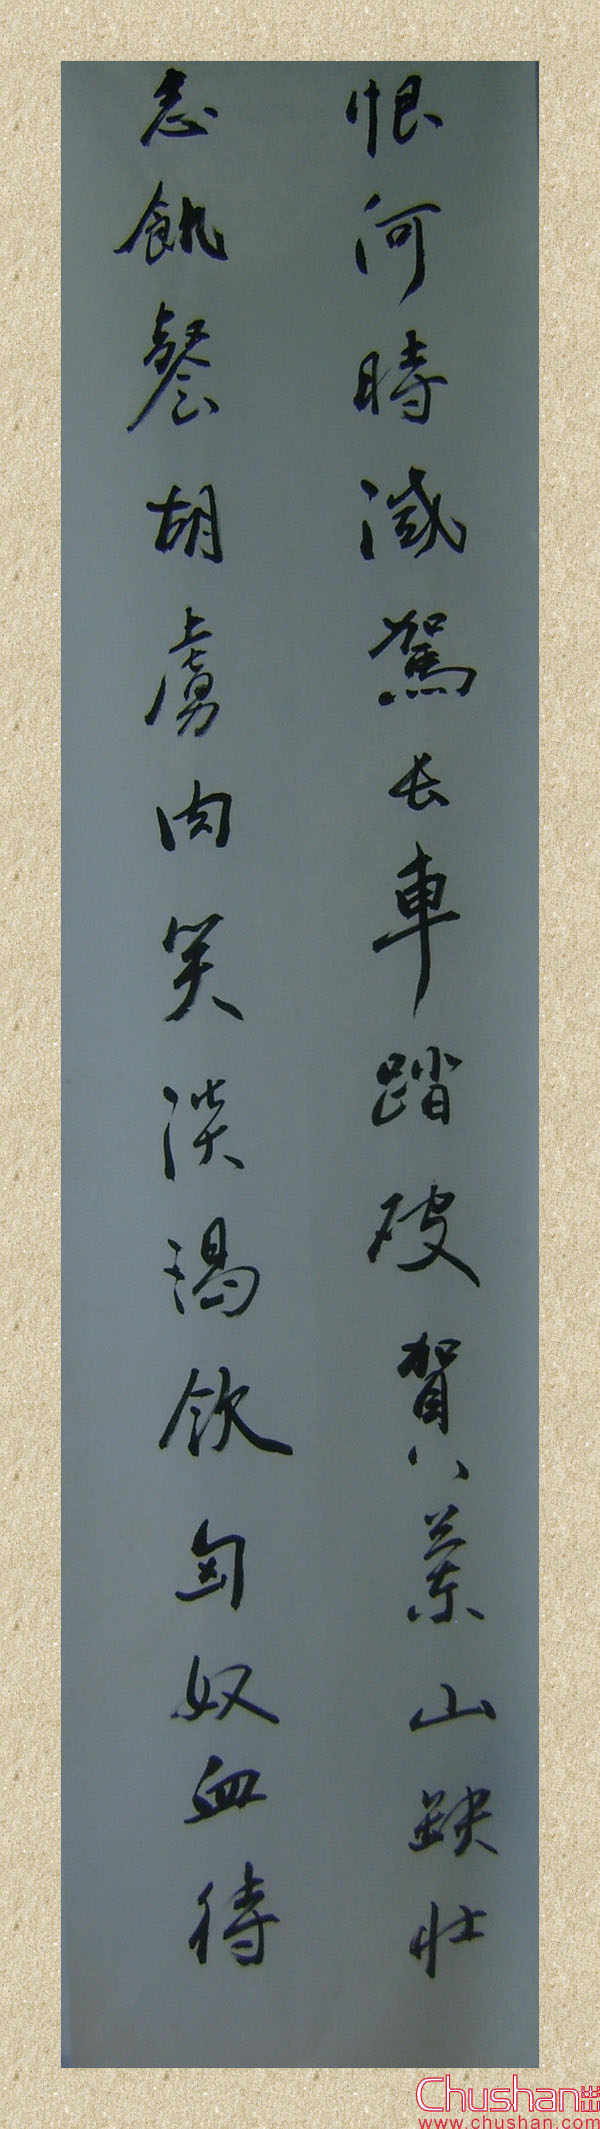 恨何時滅駕长車踏破賀蘭山缺壮
志飢餐胡虜肉笑談渴飲匈奴血待
Chushan出
www.chushan.com